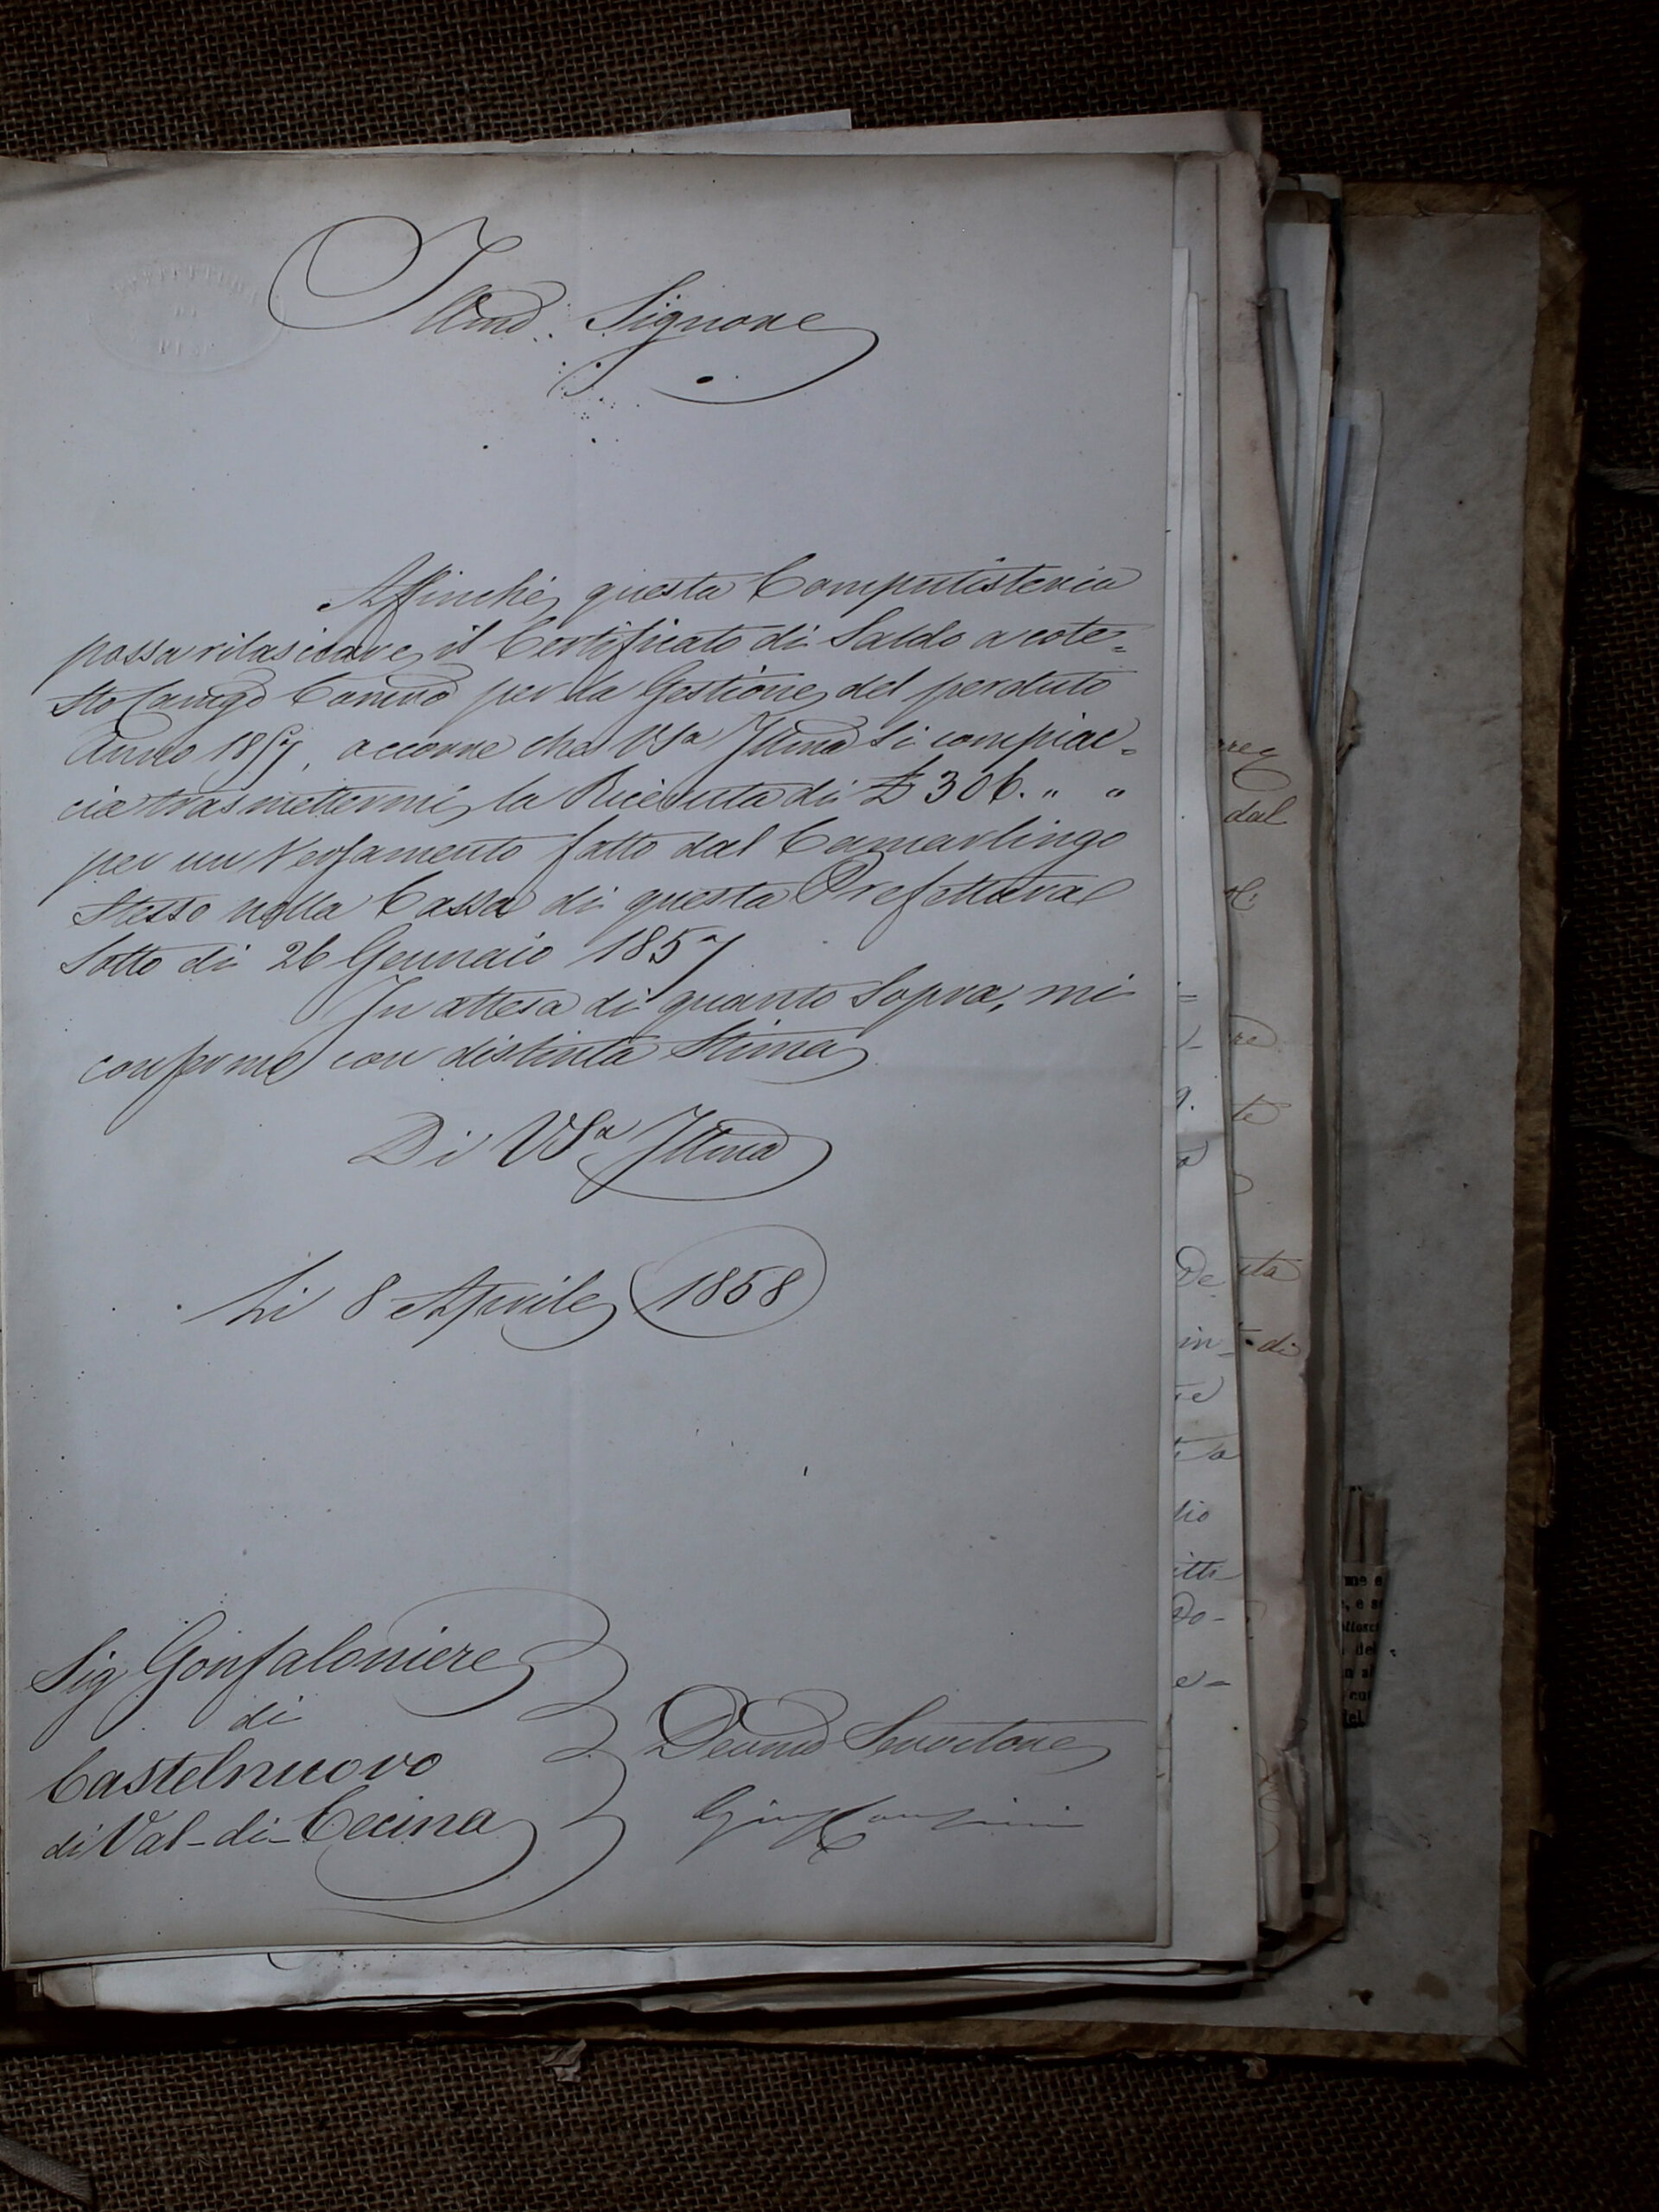 PREFETTURA
DI
PISA
Illmo. Signore
Affinchè questa Computisteria
possa rilasciare il Certificato di Saldo a cote=
sto Camgo Comvo per la Gestione del perduto
Anno 1857, occorre che VSa Illma si compiac=
cia trasmettermi la Ricevuta di £ 306. " "
per un Versamento fatto dal Camarlingo
Stesso nella Cassa di questa Prefettura
Sotto di 26 Gennaio 1857
In attesa di quanto Sopra, mi
confermo con distinta Stima
Di VSa Illma
Li 8 Aprile 1858
Sig Gonfaloniere
di
Castelnuovo
di Val-di-Cecina
Devmo Servitore
dal
De
ita
in=
di
te
lio
itti
Do-
e=
del